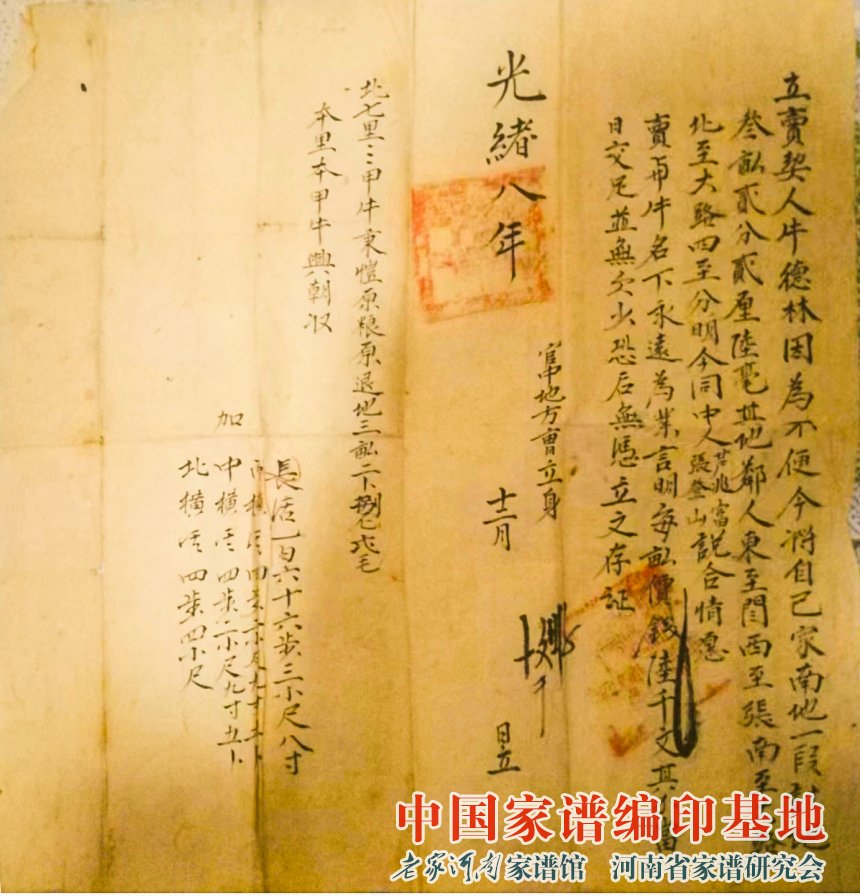 立賣契人牛德林因為不便今將自己家南地一段
叁畝貳分貳厘陸毫其地鄰人東至閆西至張南至
北至大路四至分明今同中人芦兆富張登山説合情愿
賣與牛名下永遠為業言明每畝價錢陸千文其
日交足並無欠少恐后無憑立文存証
官中地方曹立身
光緒八年
十二月
日立
北七里三甲牛秉愷原粮原退地三畝二
本里本甲牛興朝收
長活一百六十六步三小尺八寸
加
中橫 四步二小尺九寸五卜
北橫 四步四小尺
中国家谱编印基地
老家河南家谱馆 河南省家谱研究会